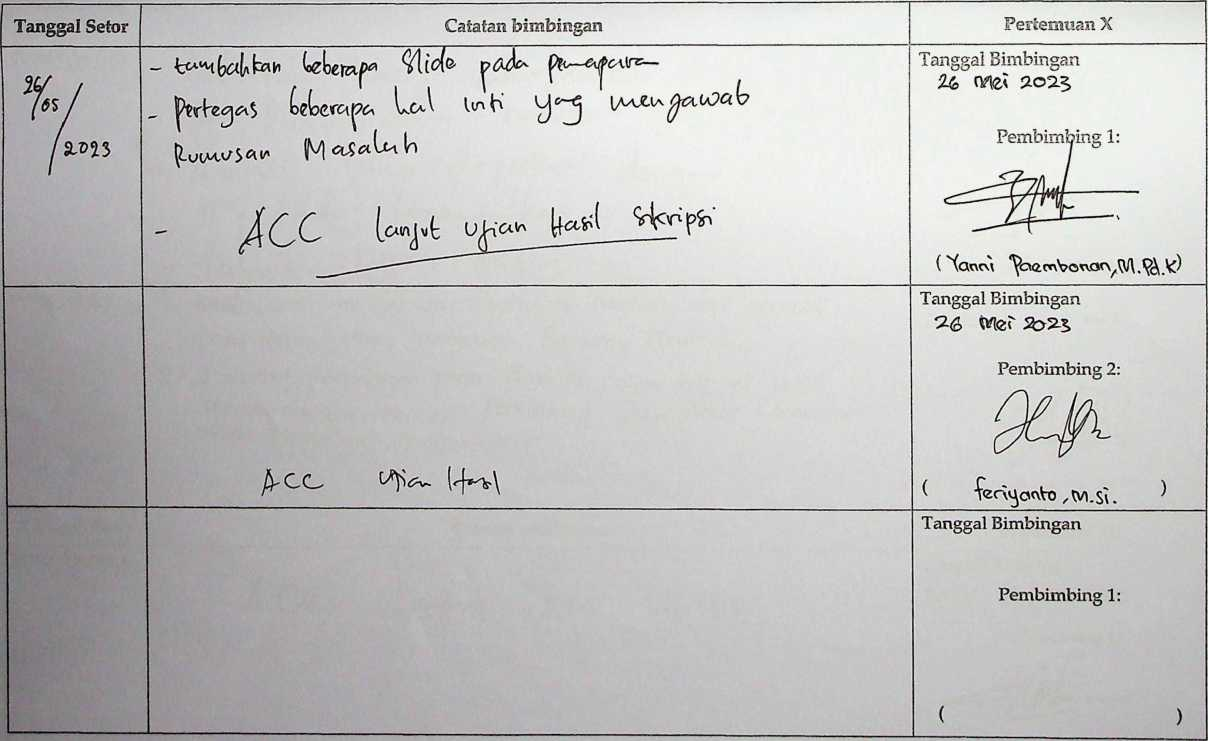 Tanggal Setor
Catatan bimbingan
Pertemuan X
26/05/2023
- tambahkan beberapa Slide pada pemaparan
- Pertegas beberapa hal inti yag mengawab
Rumusan Masalah
- ACC lanjut Ujian Hasil Skripsi
Tanggal Bimbingan
26 Mei 2023
Pembimbing 1:
(Yanni Paembonan, M.Pd.K)
ACC Ujian Hasil
Tanggal Bimbingan
26 Mei 2023
Pembimbing 2:
( feriyanto, M.si. )
Tanggal Bimbingan
Pembimbing 1:
( )